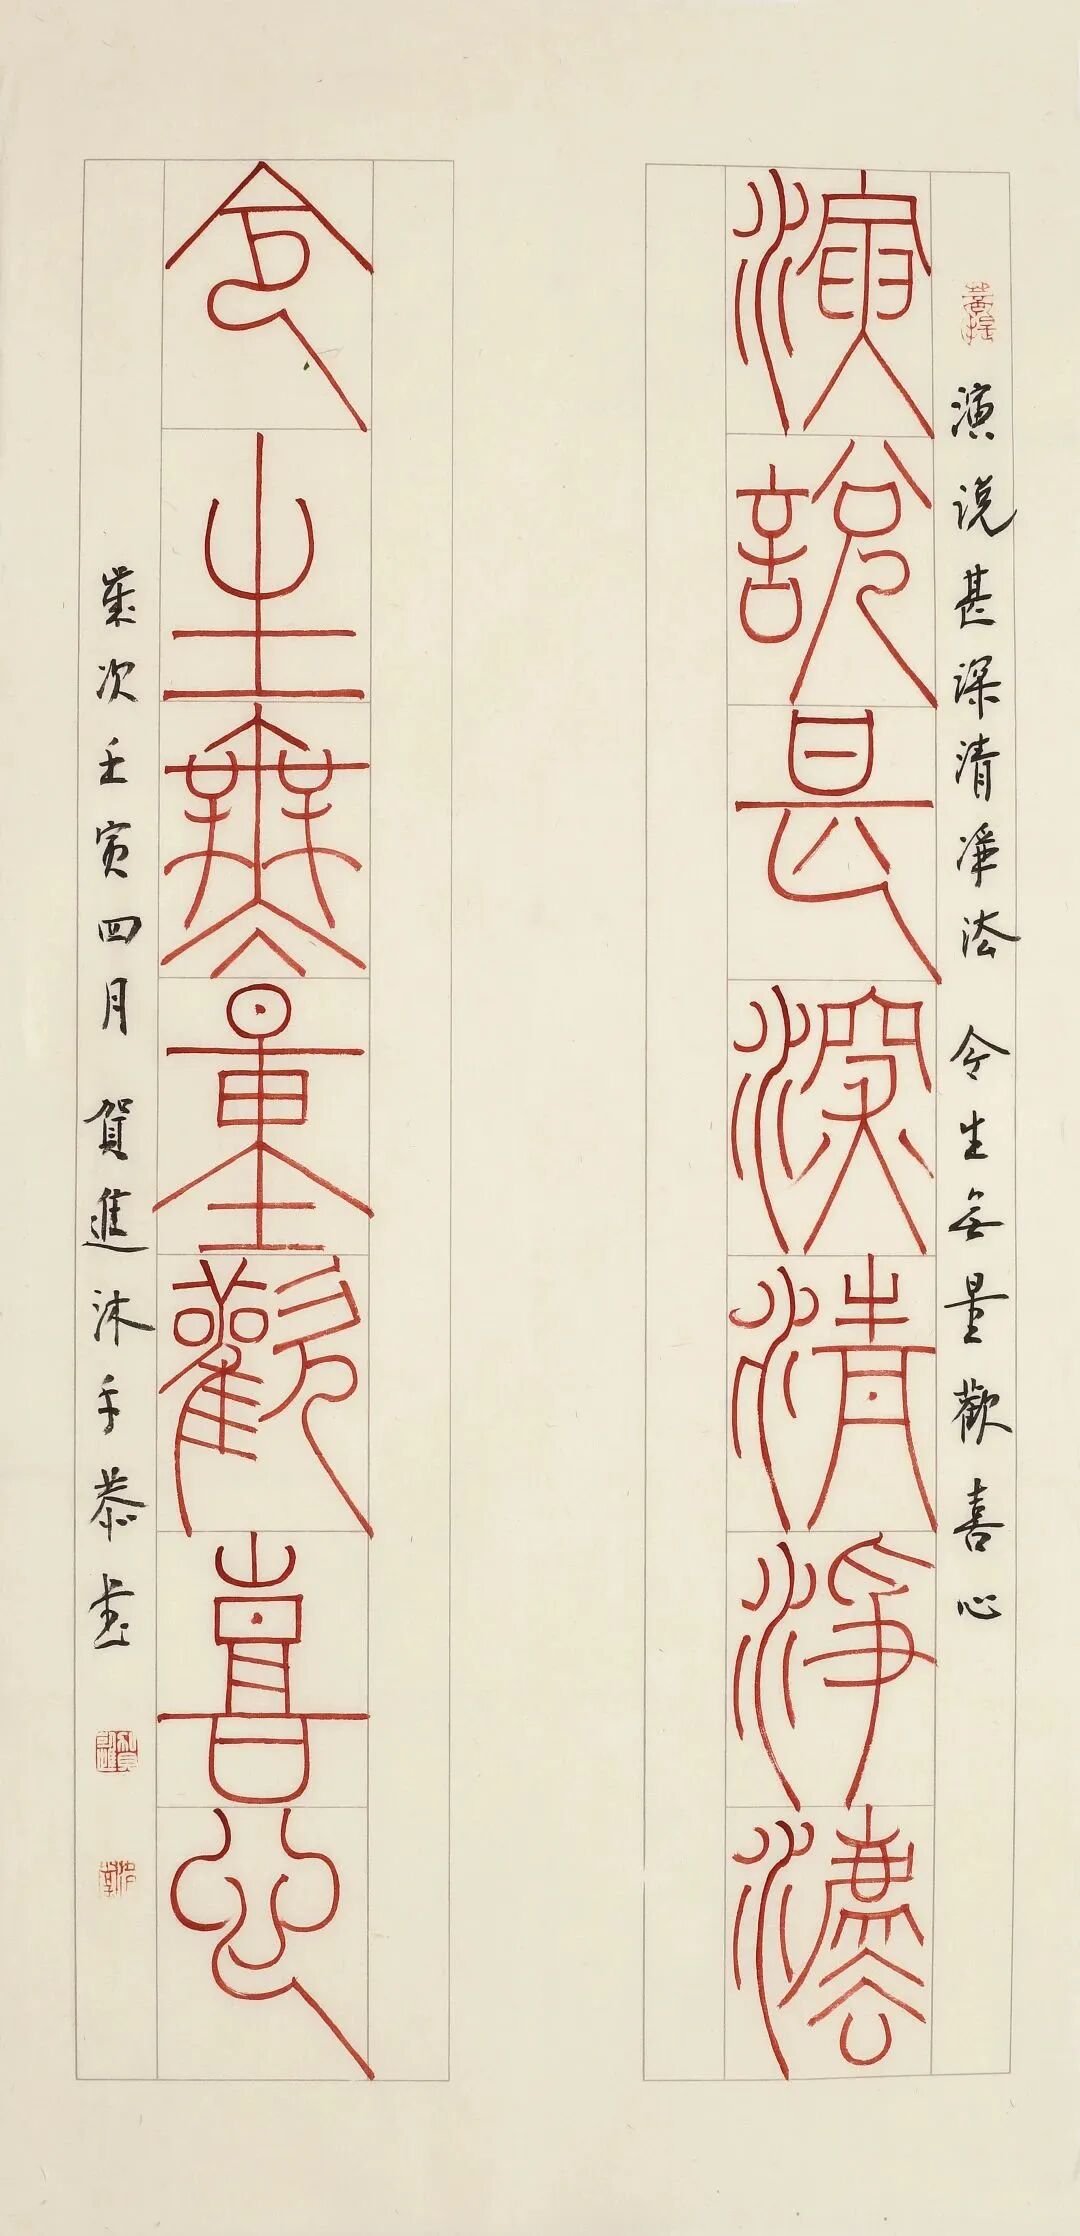 演說甚深清淨灋
令生無量歡喜心
菩提
演说甚深清净法 令生无量歡喜心
歲次壬寅四月 賀進沐手恭書